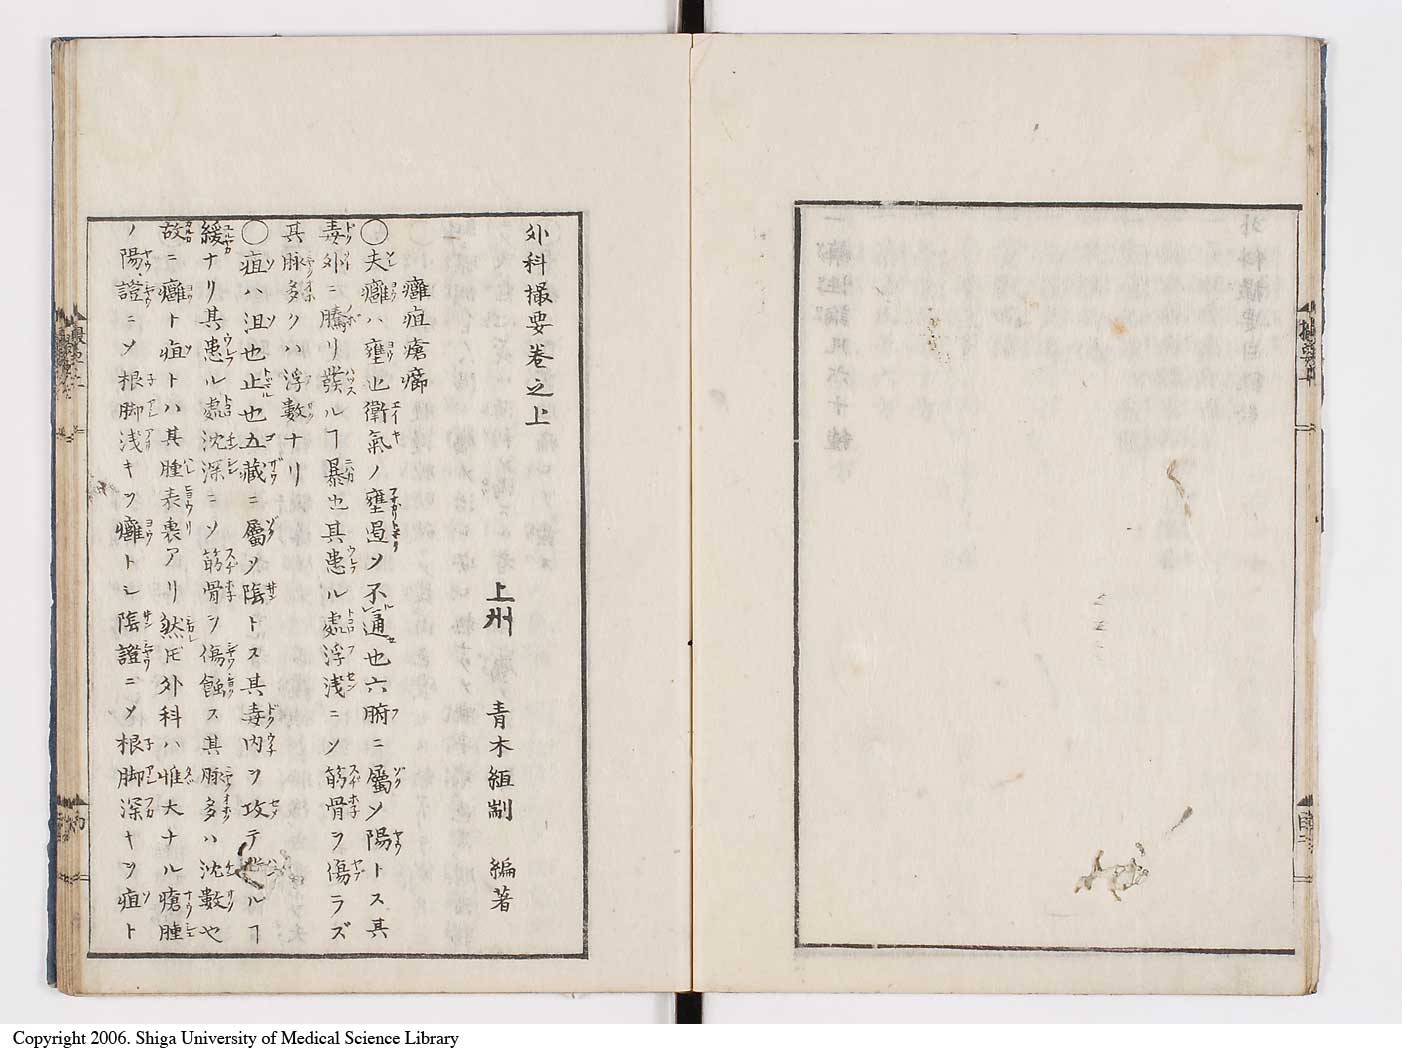 外科撮要卷之上
上州 青木組㓮 編著
癰疽瘡癤
〇夫癰ハ壅也衛氣ノ壅遏ソ不通也六腑ニ屬ソ陽トス其
毒外ニ騰リ發ルヿ暴也其患ル處浮浅ニソ筋骨ヲ傷ラズ
其脉多クハ浮數ナリ
〇疽ハ沮也止也五藏ニ屬ソ陰トス其毒内ヲ攻テ ルヿ
緩ナリ其患ル處沈深ニソ筋骨ヲ傷蝕ス其脉多ハ沈數也
故ニ癰ト疽トハ其腫表裏アリ然𪜈外科ハ惟大ナル瘡腫
ノ陽證ニメ根脚浅キヲ癰トシ陰證ニメ根脚深キヲ疽ト
Copyright 2006. Shiga University of Medical Science Library